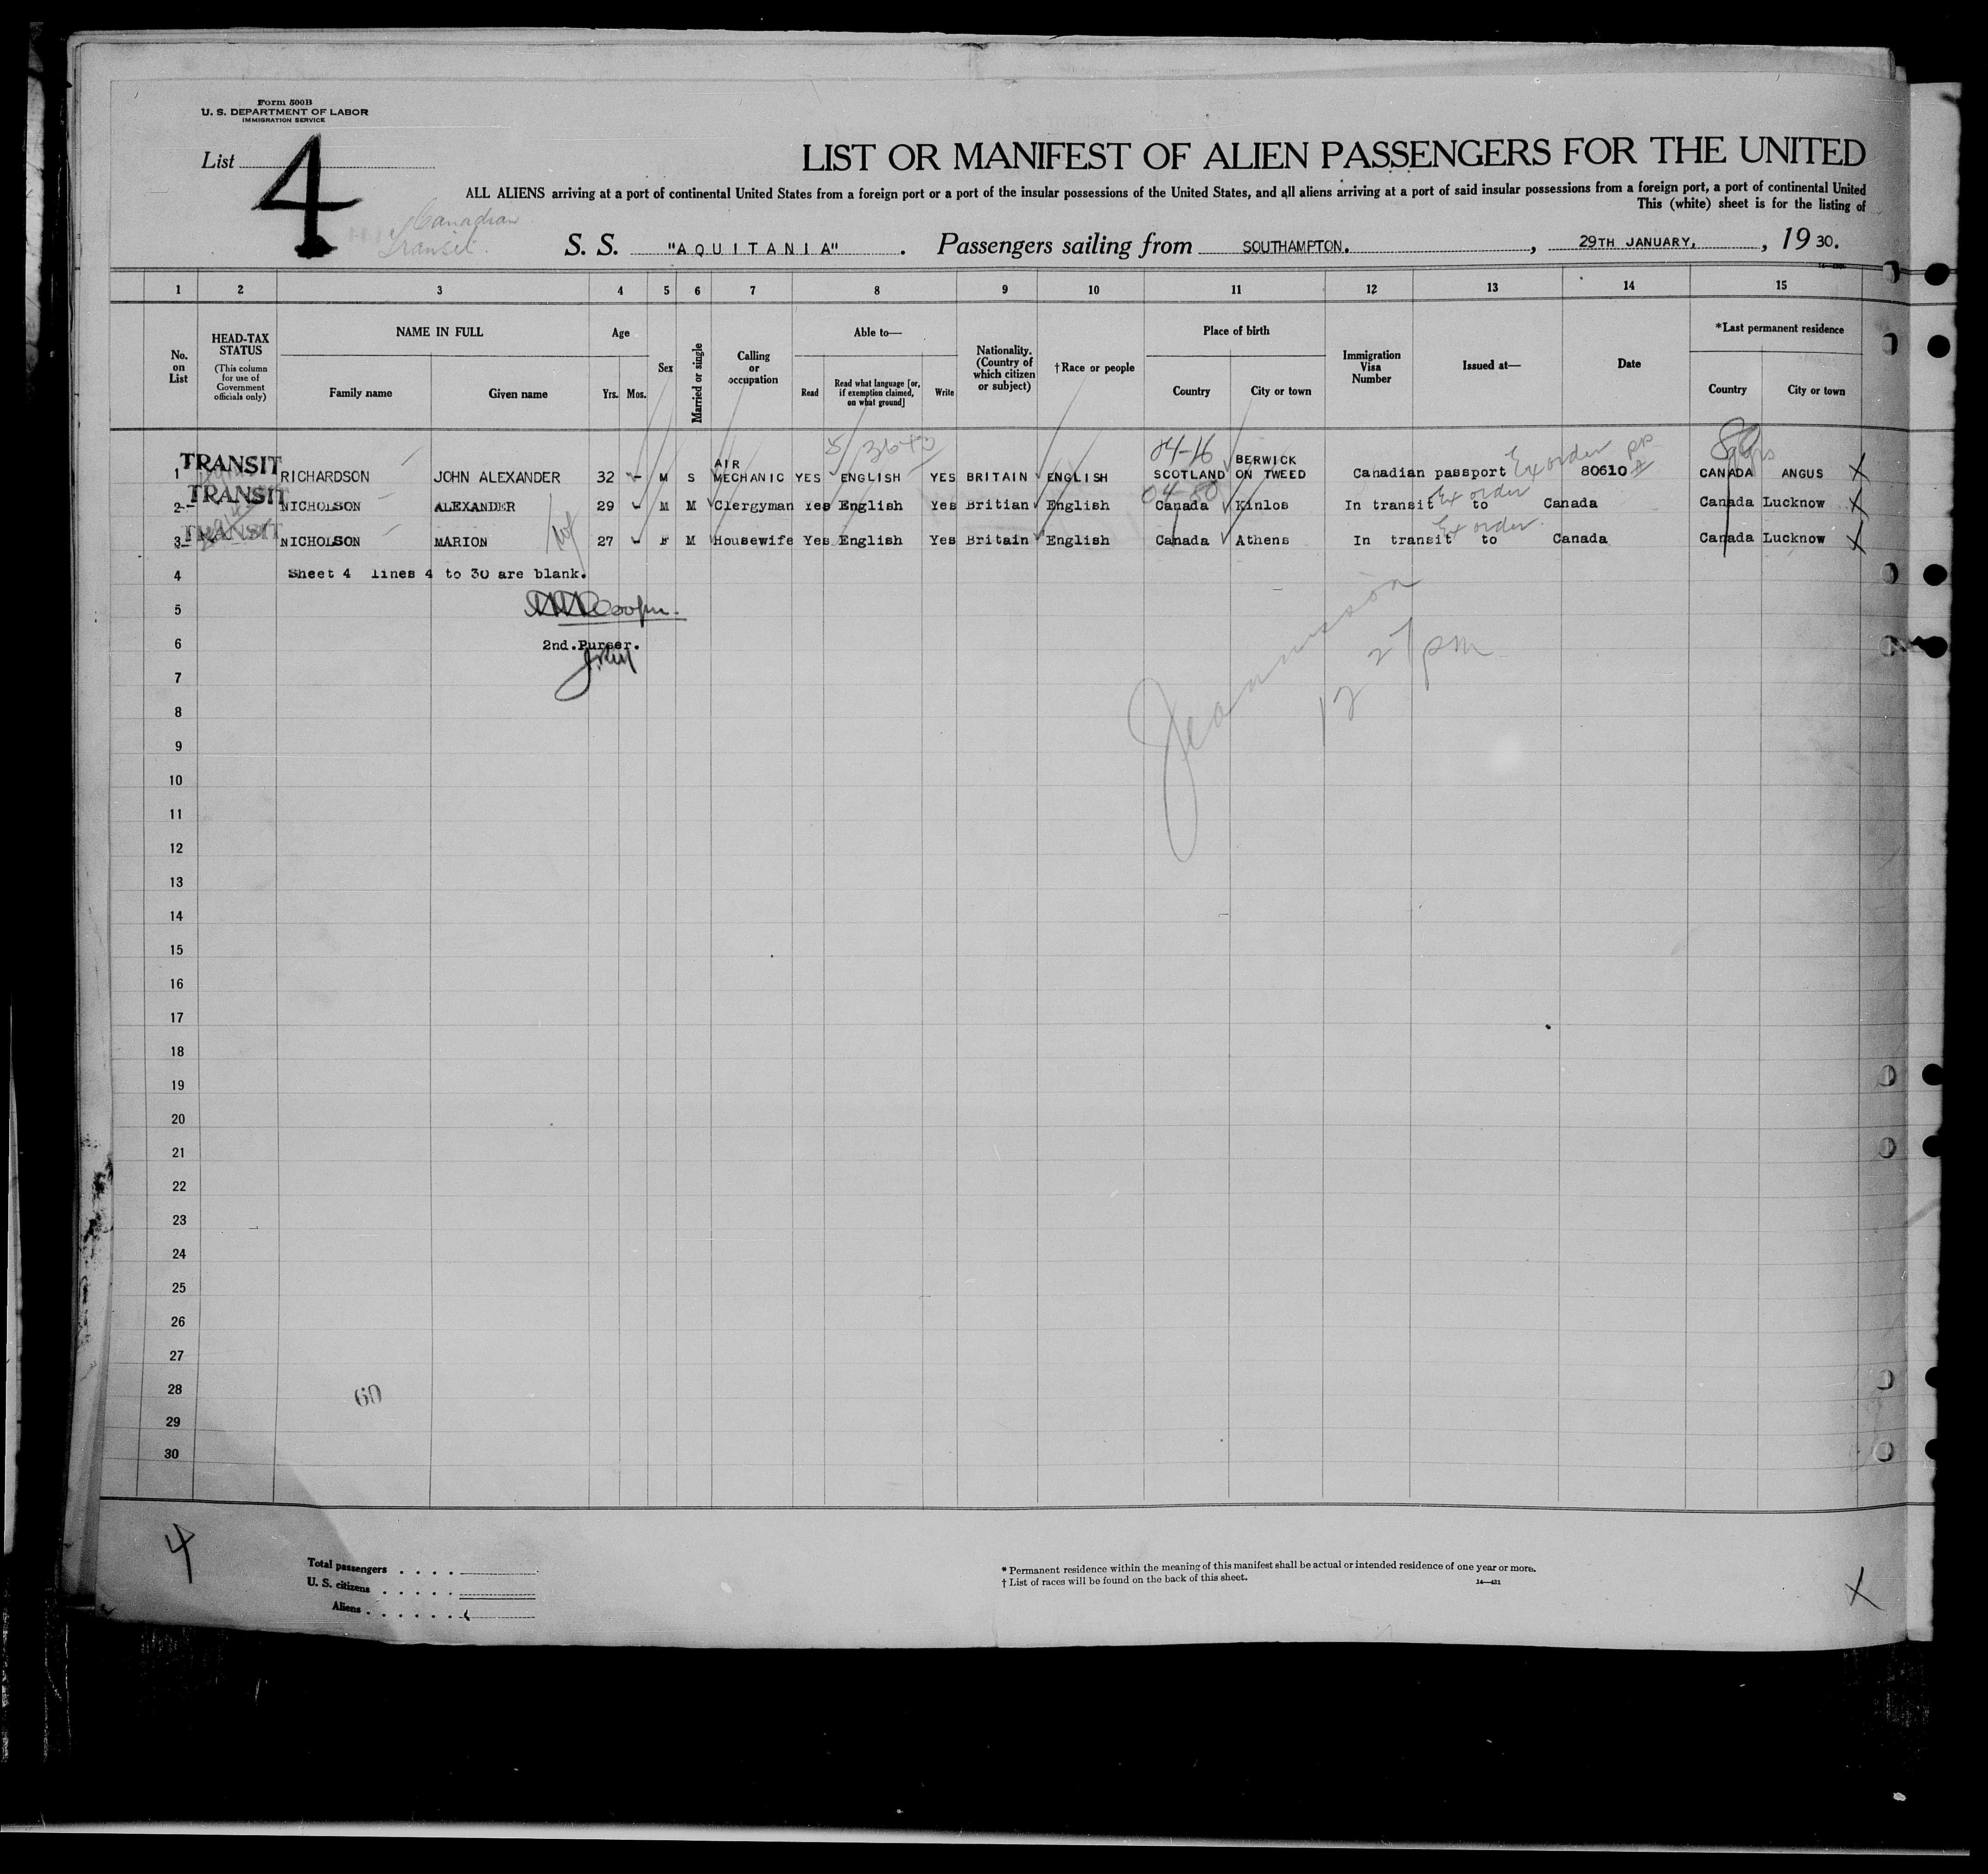 Form 500B
U. S. DEPARTMENT OF LABOR
IMMIGRATION SERVICE
List 4
LIST OR MANIFEST OF ALIEN PASSENGERS FOR THE UNITED
ALL ALIENS arriving at a port of continental United States from a foreign port or a port of the insular possessions of the United States, and all aliens arriving at a port of said insular possessions from a foreign port, a port of continental United
This (white) sheet is for the listing of
Canadian
Transit.
S. S. "AQUITANIA". Passengers sailing from SOUTHAMPTON., 29TH JANUARY, , 19 30.
1 2 3 4 5 6 7 8 9 10 11 12 13 14 15
No. on List
HEAD-TAX STATUS (This column for use of Government officials only)
NAME IN FULL
Family name Given name
Age
Yrs. Mos.
Sex
Married or single
Calling or occupation
Able to—
Read
Read what language [or, if exemption claimed, on what ground]
Write
Nationality. (Country of which citizen or subject)
†Race or people
Place of birth
Country City or town
Immigration Visa Number
Issued at—
Date
*Last permanent residence
Country City or town
04-16
1 TRANSIT RICHARDSON JOHN ALEXANDER 32 - M S AIR MECHANIC YES ENGLISH YES BRITAIN ENGLISH SCOTLAND BERWICK ON TWEED Canadian passport Ex order 80610 CANADA ANGUS X
04-80
2 TRANSIT NICHOLSON ALEXANDER 29 - M M Clergyman Yes English Yes Britian English Canada Kinlos In transit to Canada Ex order Canada Lucknow X
3 TRANSIT NICHOLSON MARION 27 - F M Housewife Yes English Yes Britain English Canada Athens In transit to Canada Ex order Canada Lucknow X
4 Sheet 4 lines 4 to 30 are blank.
5
6 2nd.Purser.
7
8
9
10
11
12
13
14
15
16
17
18
19
20
21
22
23
24
25
26
27
28
29
30
12 27 pm
60
4
Total passengers
U. S. citizens
Aliens
* Permanent residence within the meaning of this manifest shall be actual or intended residence of one year or more.
† List of races will be found on the back of this sheet.
14—431
X